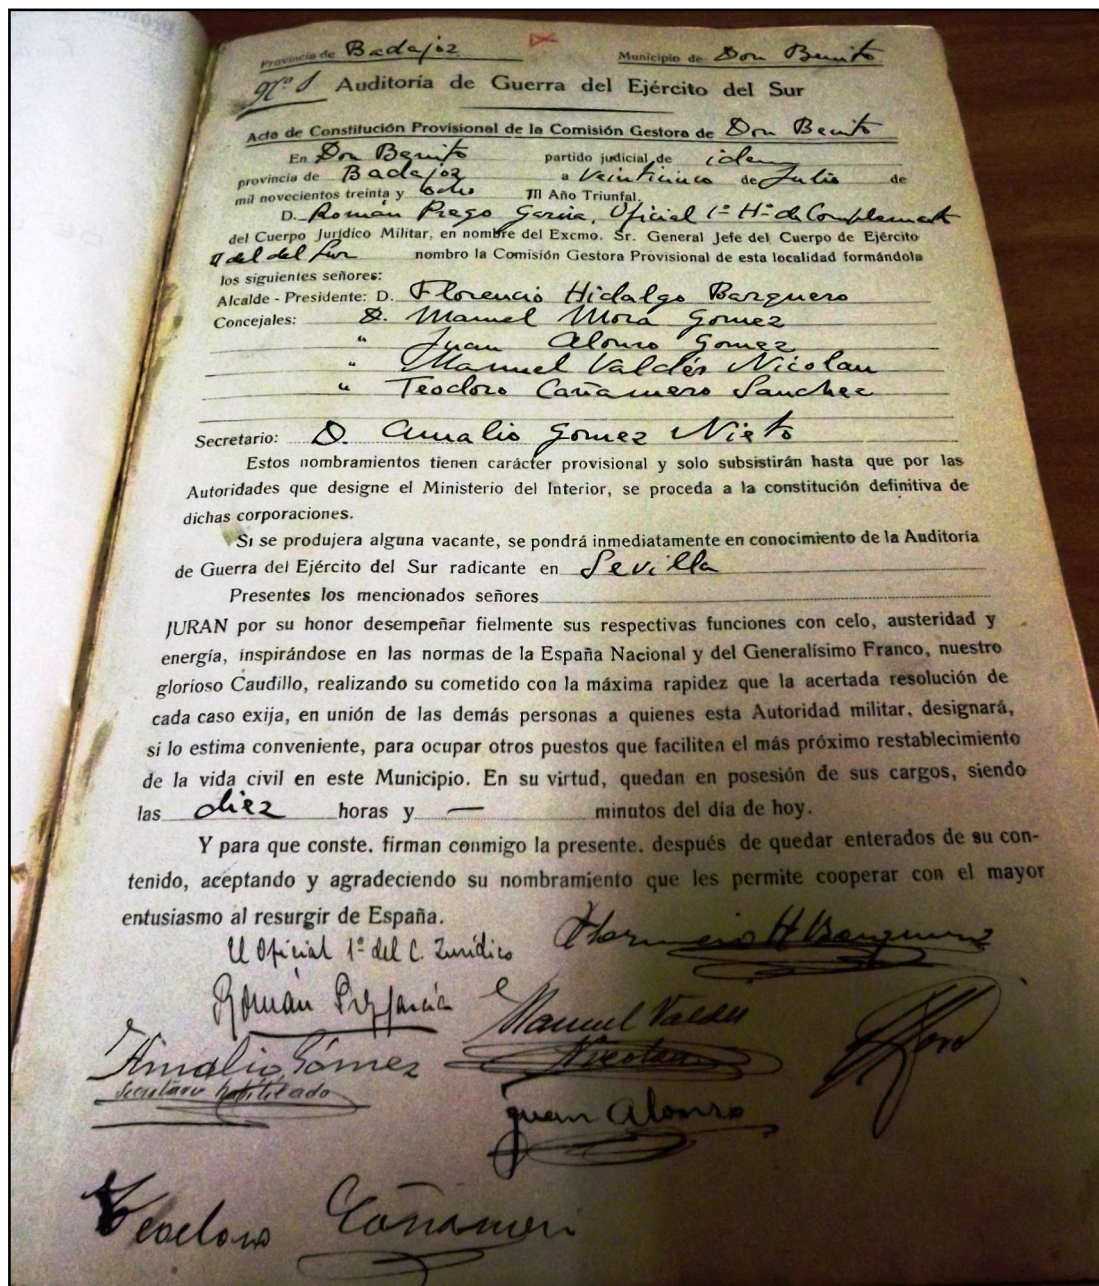 Provincia de Badajoz Municipio de Don Benito
Nº 1 Auditoría de Guerra del Ejército del Sur
Acta de Constitución Provisional de la Comisión Gestora de Don Benito
En Don Benito partido judicial de idem
provincia de Badajoz a Veinticinco de Julio de
mil novecientos treinta y ocho III Año Triunfal.
D. Román Prego García, Oficial 1º Hº de Complemento
del Cuerpo Jurídico Militar, en nombre del Excmo. Sr. General Jefe del Cuerpo de Ejército
del Sur nombro la Comisión Gestora Provisional de esta localidad formándola
los siguientes señores:
Alcalde - Presidente: D. Florencio Hidalgo Barquero
Concejales: D. Manuel Mora Gomez
" Juan Alonso Gomez
" Manuel Valdés Nicolau
" Teodoro Cañamero Sanchez
Secretario: D. Amalio Gomez Nieto
Estos nombramientos tienen carácter provisional y solo subsistirán hasta que por las
Autoridades que designe el Ministerio del Interior, se proceda a la constitución definitiva de
dichas corporaciones.
Si se produjera alguna vacante, se pondrá inmediatamente en conocimiento de la Auditoría
de Guerra del Ejército del Sur radicante en Sevilla
Presentes los mencionados señores
JURAN por su honor desempeñar fielmente sus respectivas funciones con celo, austeridad y
energía, inspirándose en las normas de la España Nacional y del Generalísimo Franco, nuestro
glorioso Caudillo, realizando su cometido con la máxima rapidez que la acertada resolución de
cada caso exija, en unión de las demás personas a quienes esta Autoridad militar, designará,
si lo estima conveniente, para ocupar otros puestos que faciliten el más próximo restablecimiento
de la vida civil en este Municipio. En su virtud, quedan en posesión de sus cargos, siendo
las diez horas y — minutos del día de hoy.
Y para que conste, firman conmigo la presente, después de quedar enterados de su con-
tenido, aceptando y agradeciendo su nombramiento que les permite cooperar con el mayor
entusiasmo al resurgir de España.
El Oficial 1º del C. Jurídico Florencio H Barquero
Román García
Manuel Valdés
Nicolau
Mora
Amalio Gómez
Secretario habilitado
Juan Alonso
Teodoro Cañamero